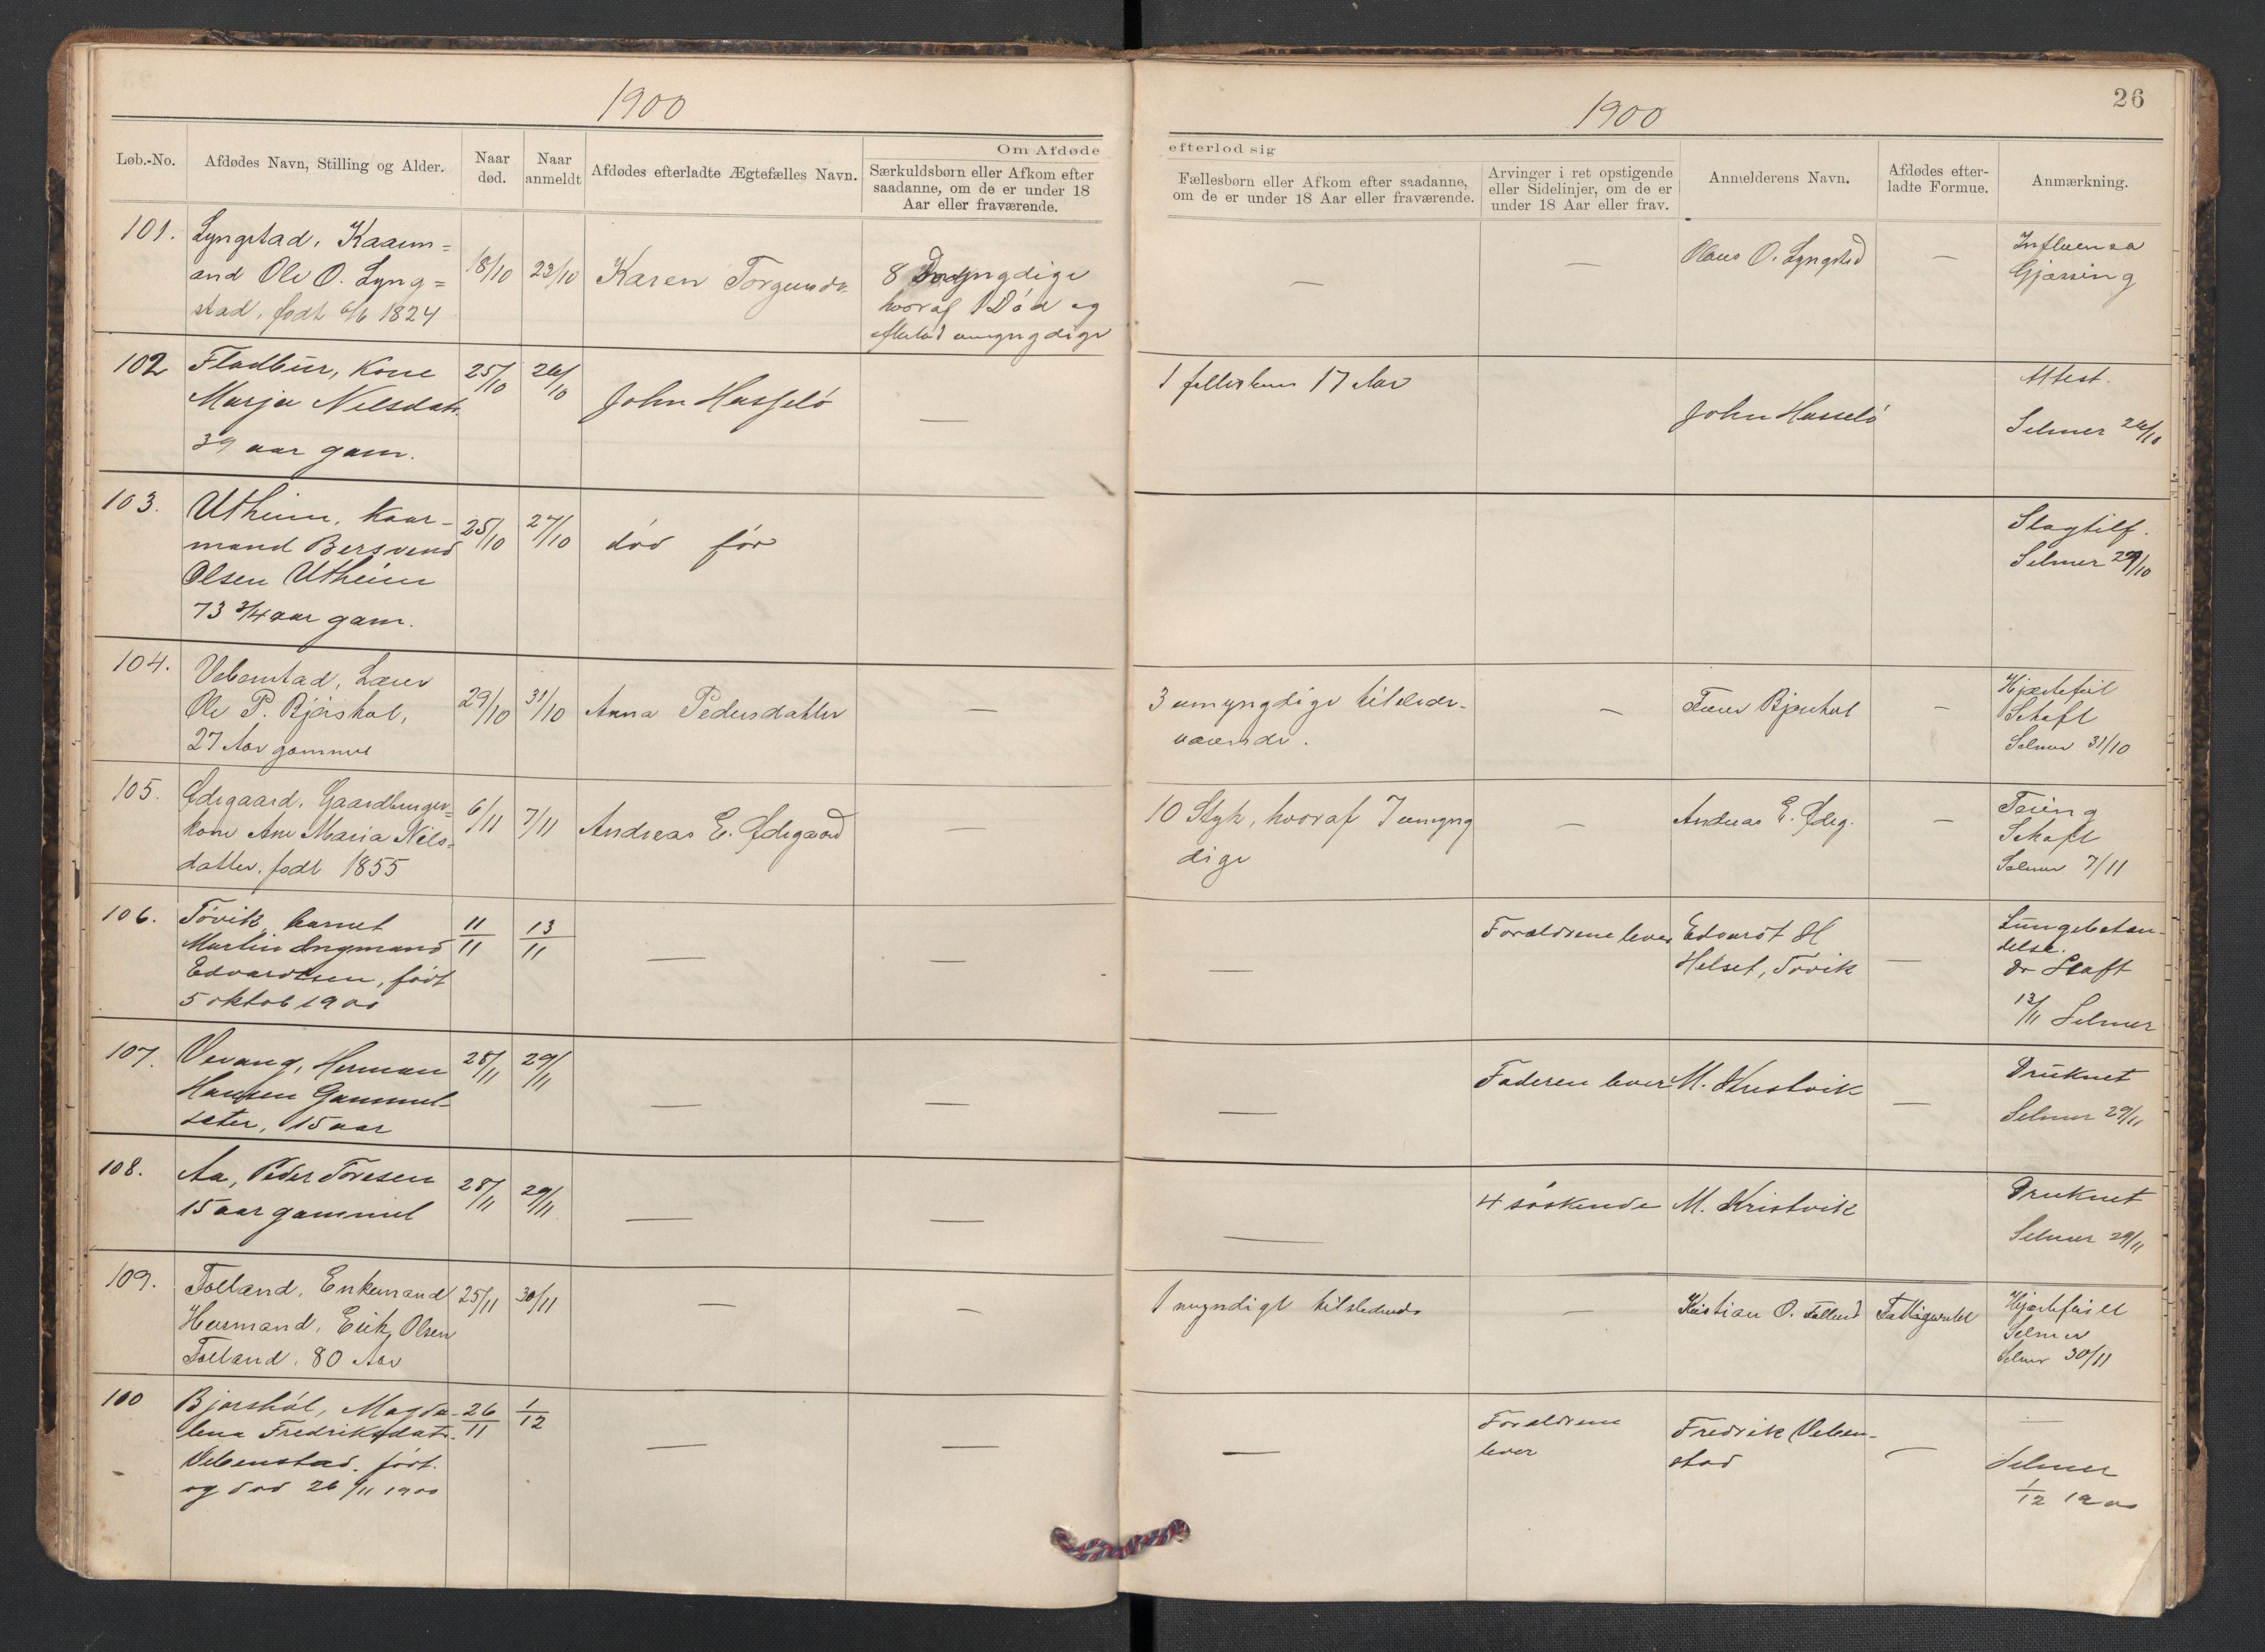 1900
1900
26
Om Afdøde
efterlod sig
Løb.-No.
Afdødes Navn, Stilling og Alder.
Naar død.
Naar anmeldt
Afdødes efterladte Ægtefælles Navn.
Særkuldsbørn eller Afkom efter
saadanne, om de er under 18
Aar eller fraværende.
Fællesbørn eller Afkom efter saadanne,
om de er under 18 Aar eller fraværende.
Arvinger i ret opstigende
eller Sidelinjer, om de er
under 18 Aar eller frav.
Anmelderens Navn.
Afdødes efter-
ladte Formue.
Anmærkning.
101.
Lyngstad, Kaarm=
and Ole O. Lyng=
stad, født 6/6 1824
18/10
23/10
Karen
8
hvoraf 1 Død og
umyngdige
—
—
O. Lyngstad
—
Influensa
Gjøssing
102
Fladbur, Kone
Marja Nelsdatr.
39 aar gam.
25/10
26/10
John Hasselø
—
1 17 Aar
John Hasselø
Attest.
Selmer 26/10
103.
Utheim, Kaar-
mand Bersvend
Olsen Utheim
73 3/4 aar gam.
25/10
27/10
død før
Slagtilf.
Selmer 29/10
104.
Vebenstad,
Ole P. Bjørshol,
27 Aar gammel
29/10
31/10
Anna Pedersdatter
—
3 umyngdige tilstede-
værende.
—
Bjørshol
—
Hjertefeil
Schaft
Selmer 31/10
105.
Ødegaard, Gaardbruger=
kone Ane Maria Nils=
datter, født 1855
6/11
7/11
Andreas E. Ødegaard
—
10 Styk, hvoraf 7 umyng
dige
—
Andreas E. Ødeg.
—
Tæring
Schaft
Selmer 7/11
106.
Tøvik, barnet
Martin Ingmand
Edvardsen, født
5 oktob 1900
11/11
13/11
—
—
—
Forældrene lever
Edvardt H
Helset, Tøvik
—
Lungebetæn-
delse.
dr Schaft
13/11 Selmer
107.
Vevang, Herman
Hansen Gammel-
seter, 15 aar
28/11
29/11
—
—
—
Faderen lever
M. Kristvik
—
Druknet
Selmer 29/11
108.
Aa, Peder Toresen
15 aar gammel
28/11
29/11
—
—
—
4 søskende
M. Kristvik
Druknet
Selmer 29/11
109.
Folland, Enkemand
Husmand, Erik Olsen
Folland, 80 Aar
25/11
30/11
—
—
1 myndigt tilstedende
—
Kristian O. Folland
Hjertefeil
Selmer
Selmer 30/11
100
Bjørshol, Magda-
lena Fredriksdatr.
Vebenstad, født
og død 26/11 1900
26/11
1/12
—
—
—
Forældrene
lever
Fredrik Veben-
stad
—
—
Selmer
1/12 1900